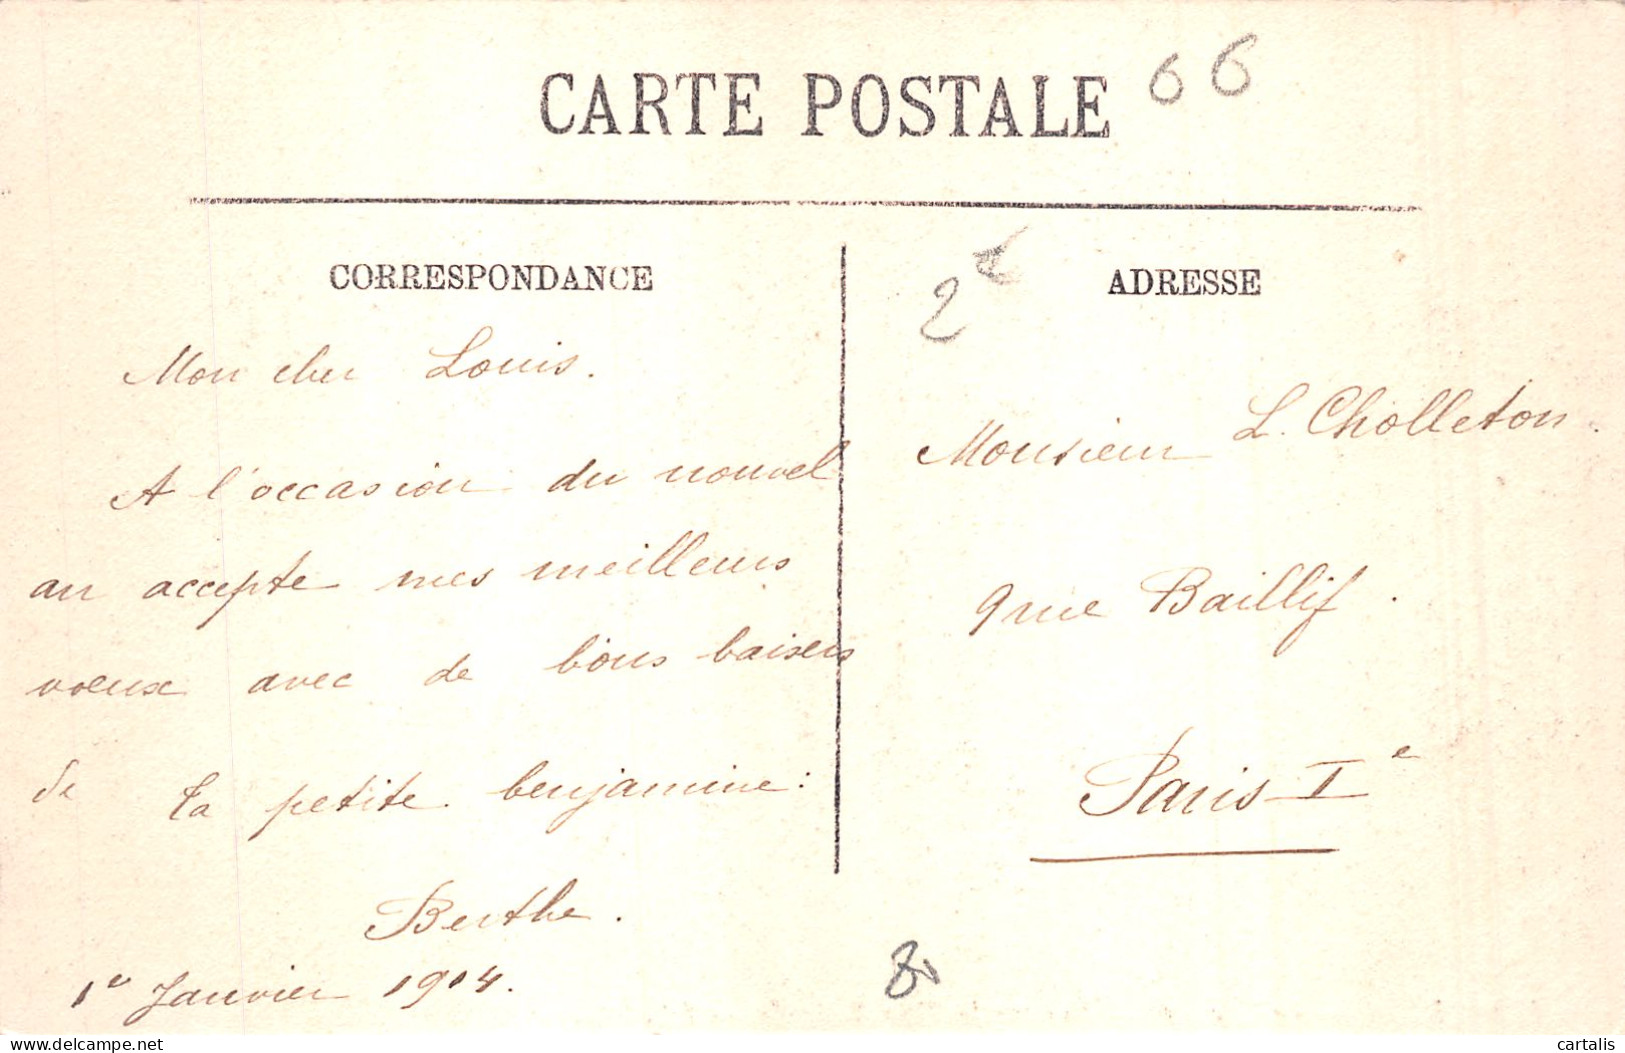 CARTE POSTALE
66
CORRESPONDANCE
Mon cher Louis.
A l'occasion du nouvel
an accepte mes meilleurs
voeux avec de bons baisers
de ta petite benjamine:
Berthe.
1er Janvier 1914.
2€
ADRESSE
Monsieur L. Cholleton.
9 rue Baillif.
Paris Ie
delcampe.net
cartalis